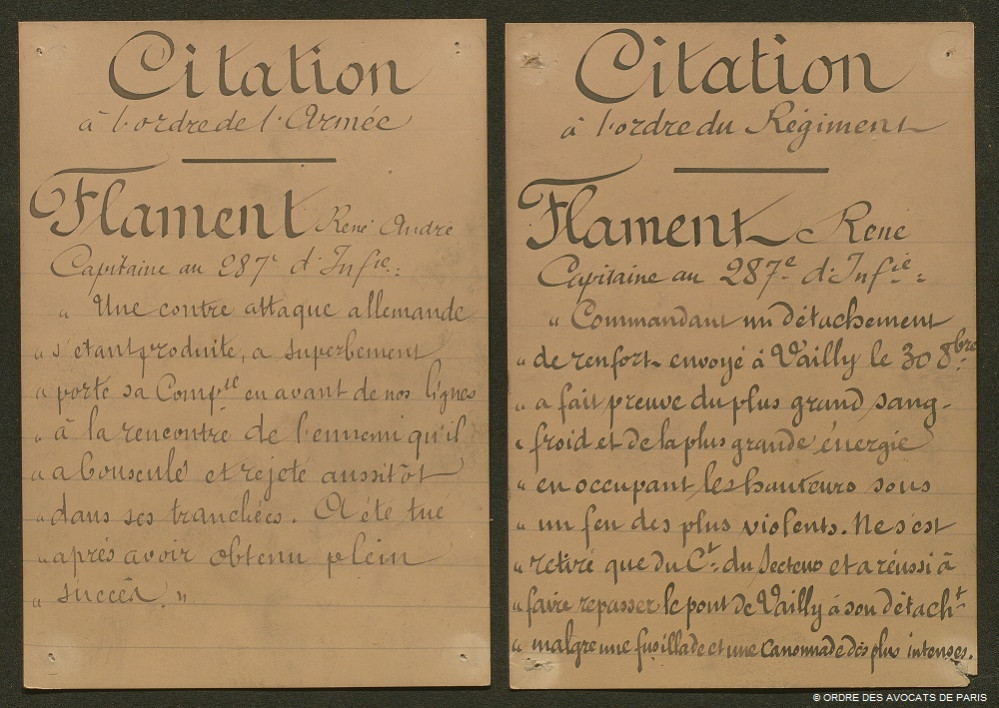 Citation
à l'ordre de l'Armée
Flament René André
Capitaine au 287e d'Infie:
" Une contre attaque allemande
" s'étant produite, a superbement
" porté sa Compie en avant de nos lignes
" à la rencontre de l'ennemi qu'il
" a bousculé et rejeté aussitôt
" dans ses tranchées. A été tué
" après avoir obtenu plein
" succès. "
Citation
à l'ordre du Régiment
Flament René
Capitaine au 287e d'Infie:
" Commandant un détachement
" de renfort envoyé à Vailly le 30 8bre
" a fait preuve du plus grand sang-
" froid et de la plus grande énergie
" en occupant les hauteurs sous
" un feu des plus violents. Ne s'est
" retiré que du Ct. du Secteur et a réussi à
" faire repasser le pont de Vailly à son détacht
" malgré une fusillade et une canonnade des plus intenses.
© ORDRE DES AVOCATS DE PARIS